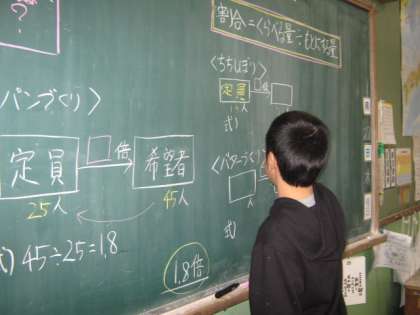 ?
割合=くらべる量÷もとにする量
パンづくり〉
定員 □倍 希望者
25人 45人
式) 45÷25=1.8
1.8倍
〈ちちしぼり〉
定員 □倍
人
式)
〈バターづくり
式)